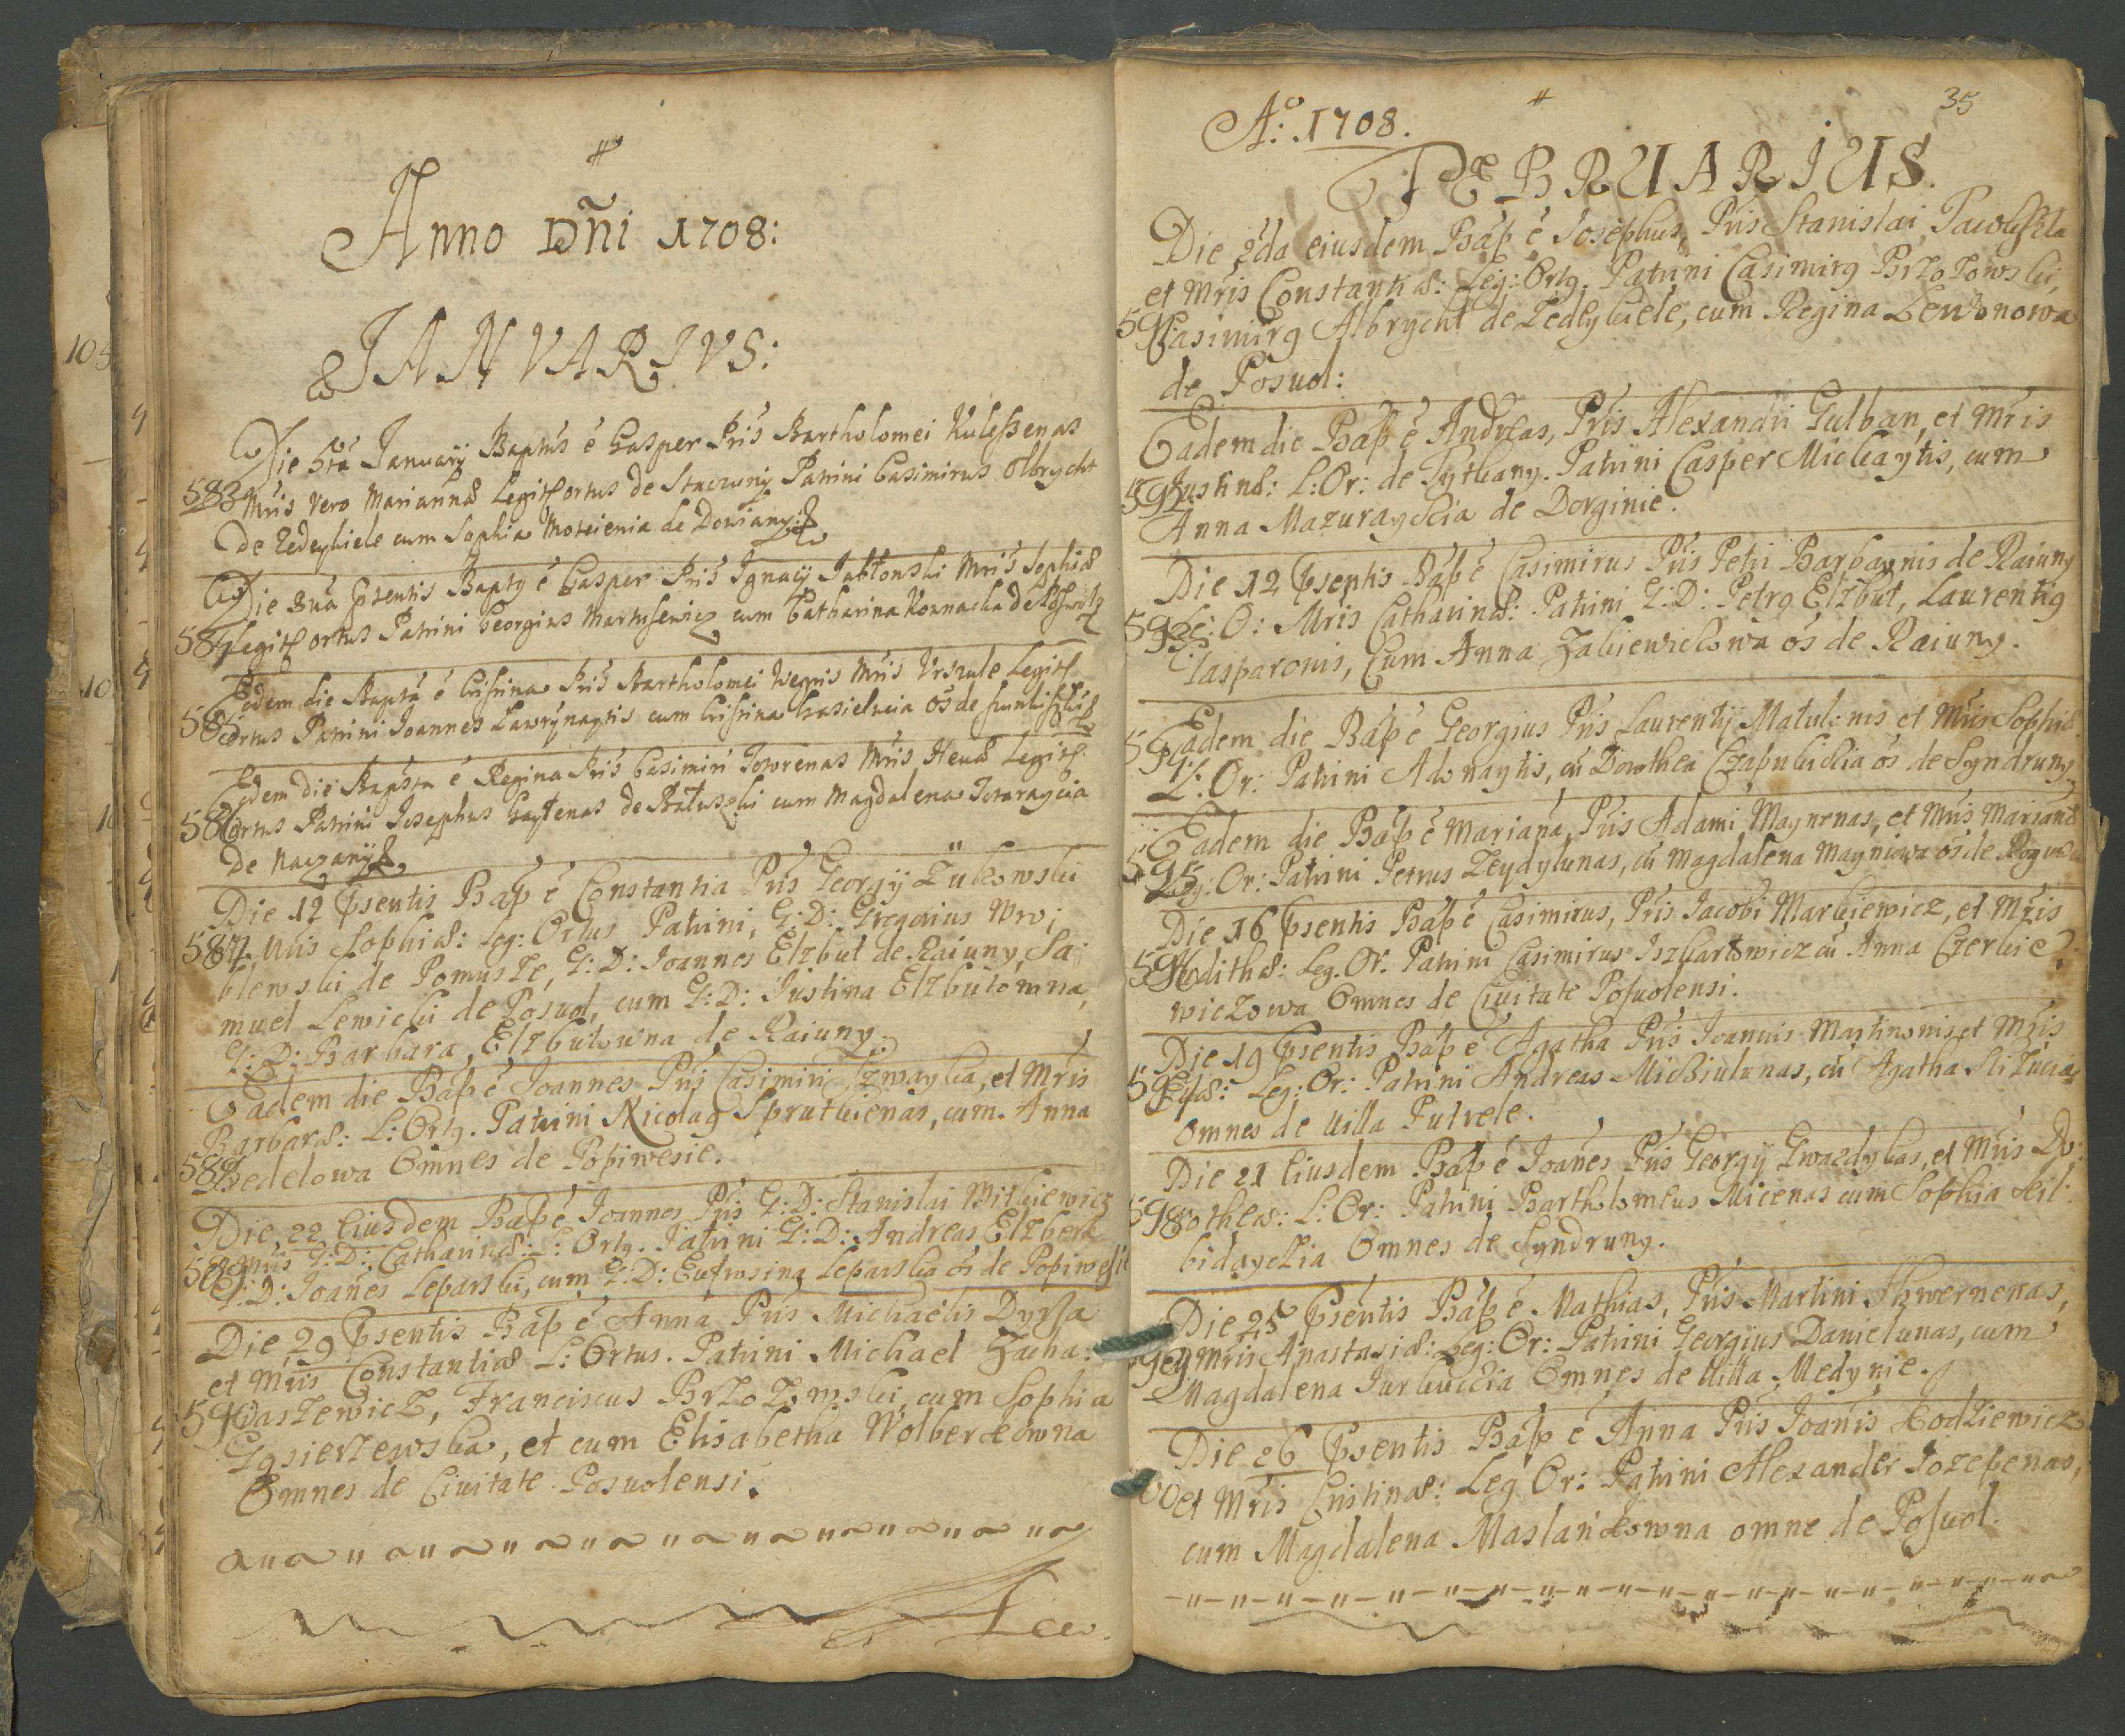 #
Anno Dñi 1708:
JANVARIVS:
Die 5ta Ianuarÿ Baptús é Gasper Pris Bartholomei Kulessenas
583 Mris vero Mariannæ Legit ortus de Patrini Casimirus Olbrycht
De Zedeykiele cum Sophia Moteienia de
Die 8ua Psentis Bapty é Gasper Pris Ignacÿ Jabłonski Mris Sophiæ
584 Legit ortus Patrini Georgius Martusewicz cum Catharina Kornacka de
Eodem die Bapta é Cristina Pris Bartholomei Wegris Mris Vrszule Legit
585 ortus Patrini Joannes Ławrynaytis cum Cristina os de
Eodem Die Bapta é Regina Pris Casimiri Towrenas Mris Hevæ Legit
586 ortus Patrini Josephus Gaytenas de cum Magdalena
de
Die 12 Psentis Báp é Constantia Pris Georgÿ Żukowski
587 Mris Sophiæ: Leg: Ortus Patrini, G: D: Gregorius Wro;
blewski de Pomusze, G: D: Joannes Elzbut de Raiuny, Sa;
muel Lewicki de Posuol, cum G: D: Justina Elzbutowna,
G: D: Barbara, Elzbutowna de Raiuny.
Eadem die Báp é Joannes Pris Casimiri, et Mris
Barbaræ: L: Ortg. Patrini Nicolag Sprutkienas, cum Anna
588 Bedelowa Omnes de Popiwesie.
Die 22 Eiusdem Báp é Joannes Pris G: D: Stanislai Witkiewicz
589 Mris G: D: Catharinæ: L: Ortg. Patrini G: D: Andreas Elzbert
G: D: Joañes Leparski, cum G: D: Eufrosina Leparska os de Popiwesie
Die 29 Psentis Báp é Anna Pris Michaelis Dyrsa
et Mris Constantiæ L: Ortus. Patrini Michael Zacha:
590 raszewicz, Franciscus Brzozowski, cum Sophia
Gąsierzewska, et cum Elisabetha Wolbertowna
Omnes de Ciuitate Posuolensi.
Aº: 1708.
#
35
FEBRUARIUS.
Die 2da eiusdem Báp é Josephus, Pris Stanislai
et Mris Constantiæ: Leg: Ortg. Patrini Casimirg Brzozowski,
591 Casimirg Albrycht de Zedeykiele, cum Regina Lewonowa
de Posuol:
Eadem die Báp é Andreas, Pris Alexandri Gulban, et Mris
592 Justinæ: L: Or: de Tytkany. Patrini Casper Mickaytis, cum
Anna Mazurayscia de Dorginie.
Die 12 Psentis Báp é Casimirus Pris Petri Barbaynis de Raiuny
593 Le: O: Mris Catharinæ: Patrini G: D: Petrg Elzbut, Laurentig
Gasparonis, Cum Anna Zakiewiczowa os de Raiuny.
Eadem die Báp é Georgius Pris Laurentÿ Matulonis et Mris Sophiæ
594 L: Or: Patrini Adonaytis, cũ Dorothea os de Syndruny
Eadem die Báp é Mariana, Pris Adami Maynenas, et Mris Marianæ
595 Leg: Or: Patrini Petrus Zeydylunas, cũ Magdalena Mayniowa os de
Die 16 Psentis Báp é Casimirus, Pris Jacobi Markiewicz, et Mris
596 Edithæ: Leg. Or. Patrini Casimirus Iszkartowicz cũ Anna Czerkie
wiczowa Omnes de Ciuitate Posuolensi.
Die 19 Psentis Báp é Agatha Pris Joannis Martinonis et Mris
597 Leg: Or: Patrini Andreas, cũ Agatha
omnes de Uilla Putrele.
Die 21 Eiusdem Báp é Joañes Pris Georgÿ Gwazdykas, et Mris Do:
598 rotheæ: L: Or: Patrini Bartholomeus Micenas cum Sophia Kil:
bidayczia Omnes de Syndruny.
Die 25 Psentis Báp é Mathias, Pris Martini Skwernenas,
599 et Mris Anastasiæ: Leg: Or: Patrini Georgius Danielunas, cum
Magdalena Omnes de Uilla Medynie.
Die 26 Psentis Báp é Anna Pris Joañis Hodziewicz
600 et Mris Cristinæ: Leg Or: Patrini Alexander Jozepenas,
cum Magdalena Maslankowna omne de Posuol.